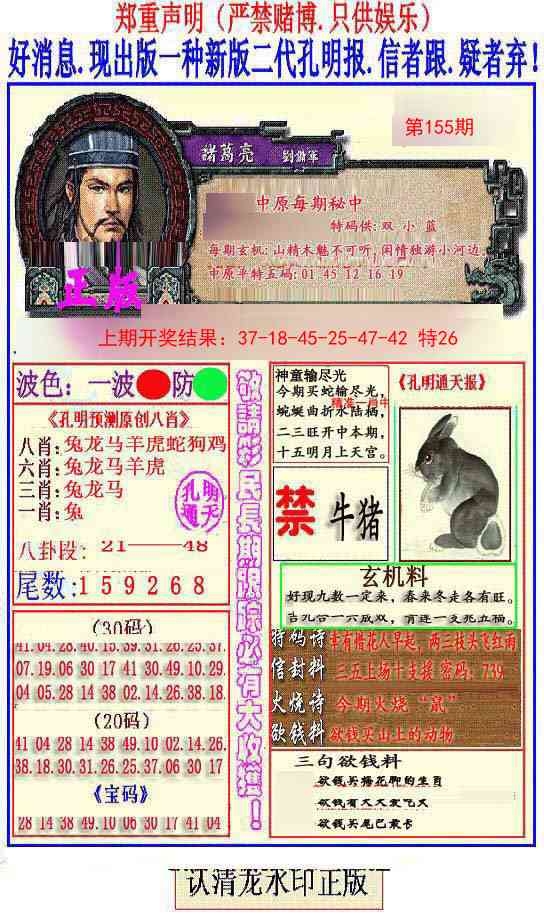 郑重声明（严禁赌博.只供娱乐）
好消息.现出版一种新版二代孔明报.信者跟.疑者弃！
第155期
諸葛亮
中原每期秘中
特码供: 双 小 蓝
每期玄机: 山精木魅不可听, 闲情独游小河边.
中原平特五码: 01 45 12 16 19
正版
上期开奖结果：37-18-45-25-47-42 特26
波色：一波 防
《孔明预测原创八肖》
八肖: 兔龙马羊虎蛇狗鸡
六肖: 兔龙马羊虎
三肖: 兔龙马
一肖: 兔
孔明通天
八卦段: 21——48
尾数: 1 5 9 2 6 8
(30码)
41.04.28.40.15.39.31.26.25.37.
07.19.06.30.17.41.30.49.10.29
04.05.28.14 38 02.14.26.38.18.
(20码)
41 04 28 14 38 49.10 02.14.26.
38.18.30.31.26.25.37.06 30 17
《宝码》
28 14 38 49.10 06 30 17 41 04
敬請彩民長期跟踪必有大收獲！
神童输尽光
今期买蛇输尽光,
精准一肖牛
蜿蜒曲折水陆栖,
二三旺开中本期,
十五明月上天宫。
《孔明通天报》
禁 牛猪
玄机料
好现九数一定来，春来冬走各有旺。
特码诗 幸有惜花人早起，两三枝头飞红雨
信封料 三五上场十支援 密码: 739
火烧诗 今期火烧“鼠”
欲钱料 欲钱买山上的动物
三句欲钱料
欲钱买梅花脚的生肖
欲钱有又又发飞天
欲钱买尾巴最卡
认清龙水印正版